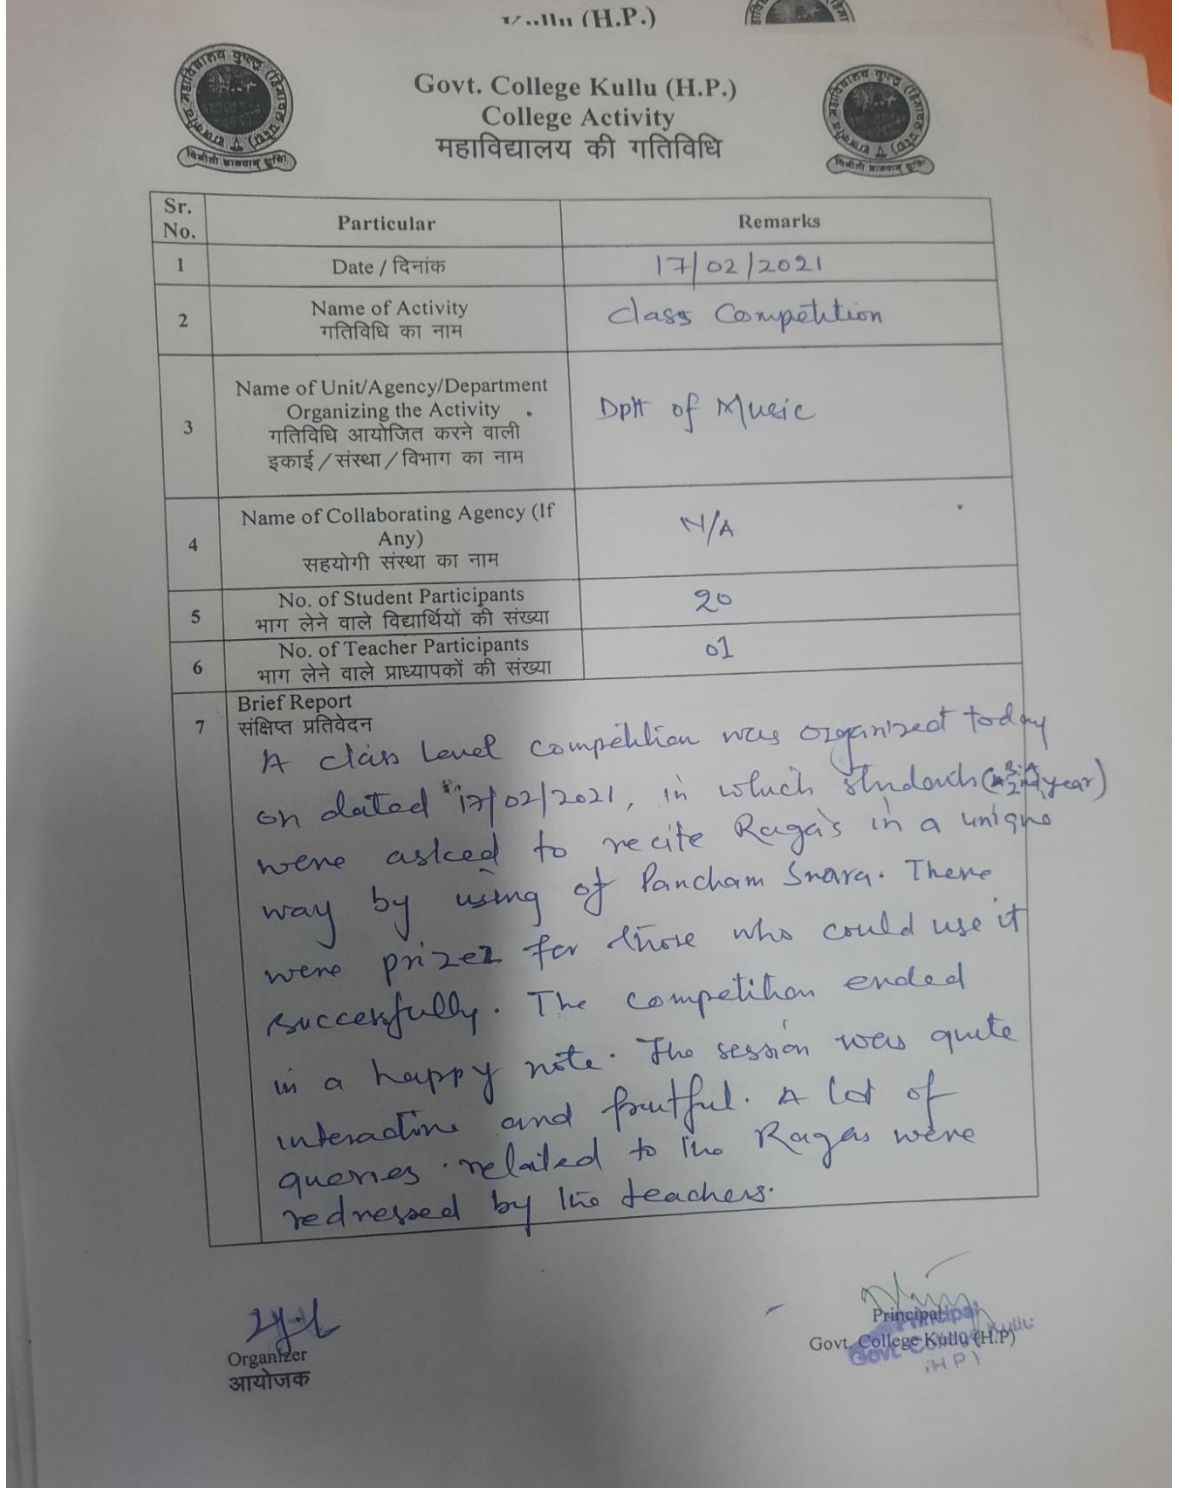 Kullu (H.P.)
Govt. College Kullu (H.P.)
College Activity
महाविद्यालय की गतिविधि
Sr. No. Particular Remarks
1 Date / दिनांक 17/02/2021
2 Name of Activity
गतिविधि का नाम
Class Competition
3 Name of Unit/Agency/Department
Organizing the Activity
गतिविधि आयोजित करने वाली
इकाई / संस्था / विभाग का नाम
Dptt of Music
4 Name of Collaborating Agency (If
Any)
सहयोगी संस्था का नाम
N/A
5 No. of Student Participants
भाग लेने वाले विद्यार्थियों की संख्या
20
6 No. of Teacher Participants
भाग लेने वाले प्राध्यापकों की संख्या
01
7 Brief Report
संक्षिप्त प्रतिवेदन
A class Level competition was organized today
on dated 17/02/2021, in which students (B.A 2nd year)
were asked to recite Raga's in a unique
way by using of Pancham Swara. There
were prizes for those who could use it
successfully. The competition ended
in a happy note. The session was quite
interactive and fruitful. A lot of
queries related to the Ragas were
redressed by the teachers.
Organizer
आयोजक
Principal
Govt. College Kullu (H.P)
Principal
Govt. College Kullu
(H.P)